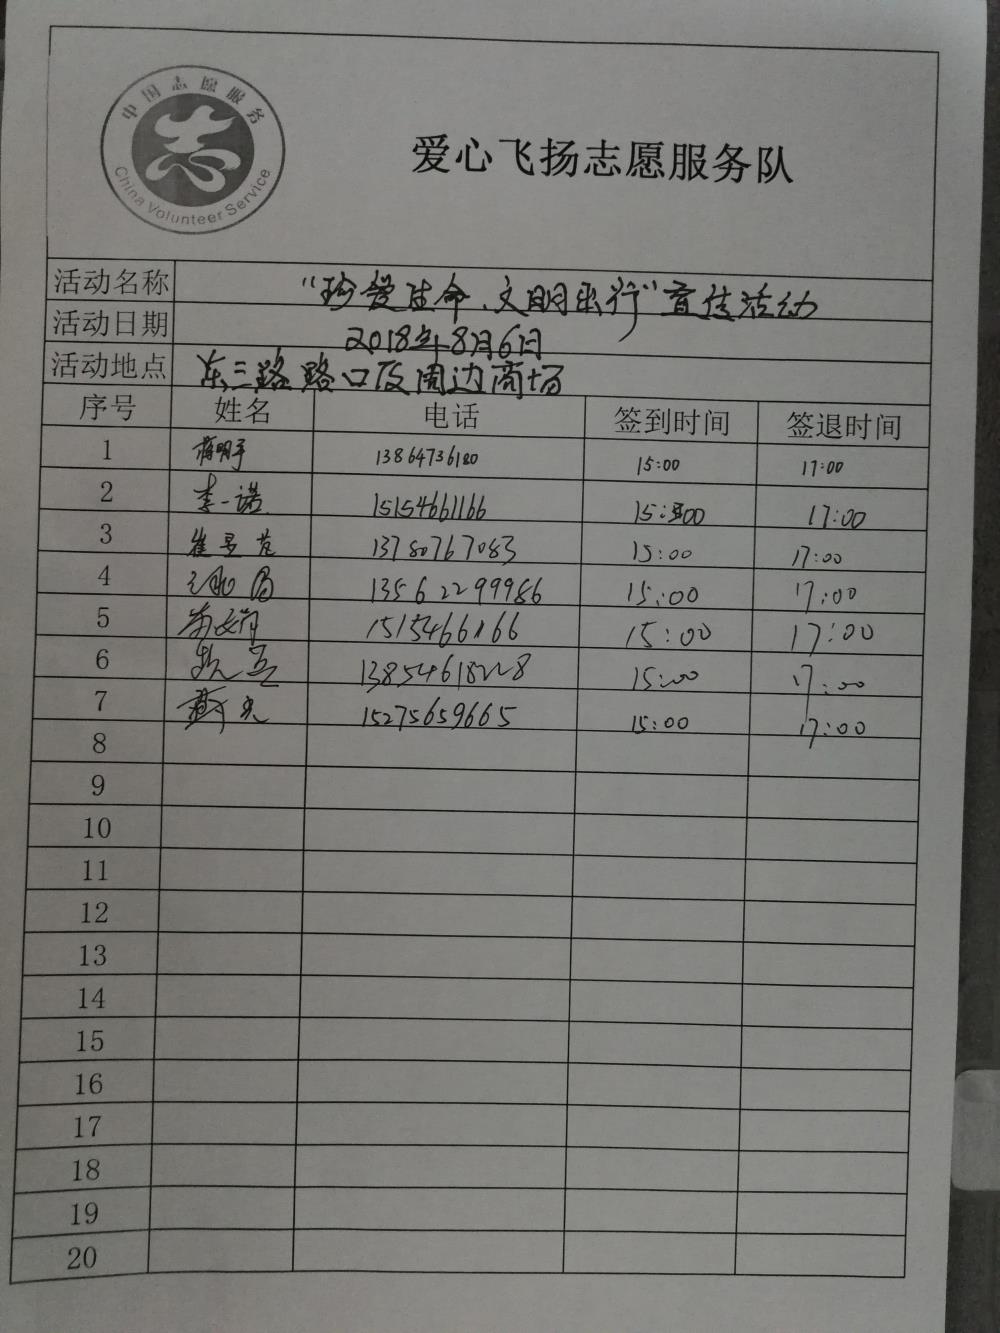 中国志愿服务
China Volunteer Service
爱心飞扬志愿服务队
活动名称 “珍爱生命、文明出行”宣传活动
活动日期 2018年8月6日
活动地点 东三路路口及周边商场
序号 姓名 电话 签到时间 签退时间
1 蒋明宇 13864736180 15:00 17:00
2 李一诺 15154661166 15:00 17:00
3 13780767083 15:00 17:00
4 13562299986 15:00 17:00
5 15154661166 15:00 17:00
6 13854618228 15:00 17:00
7 15275659665 15:00 17:00
8
9
10
11
12
13
14
15
16
17
18
19
20